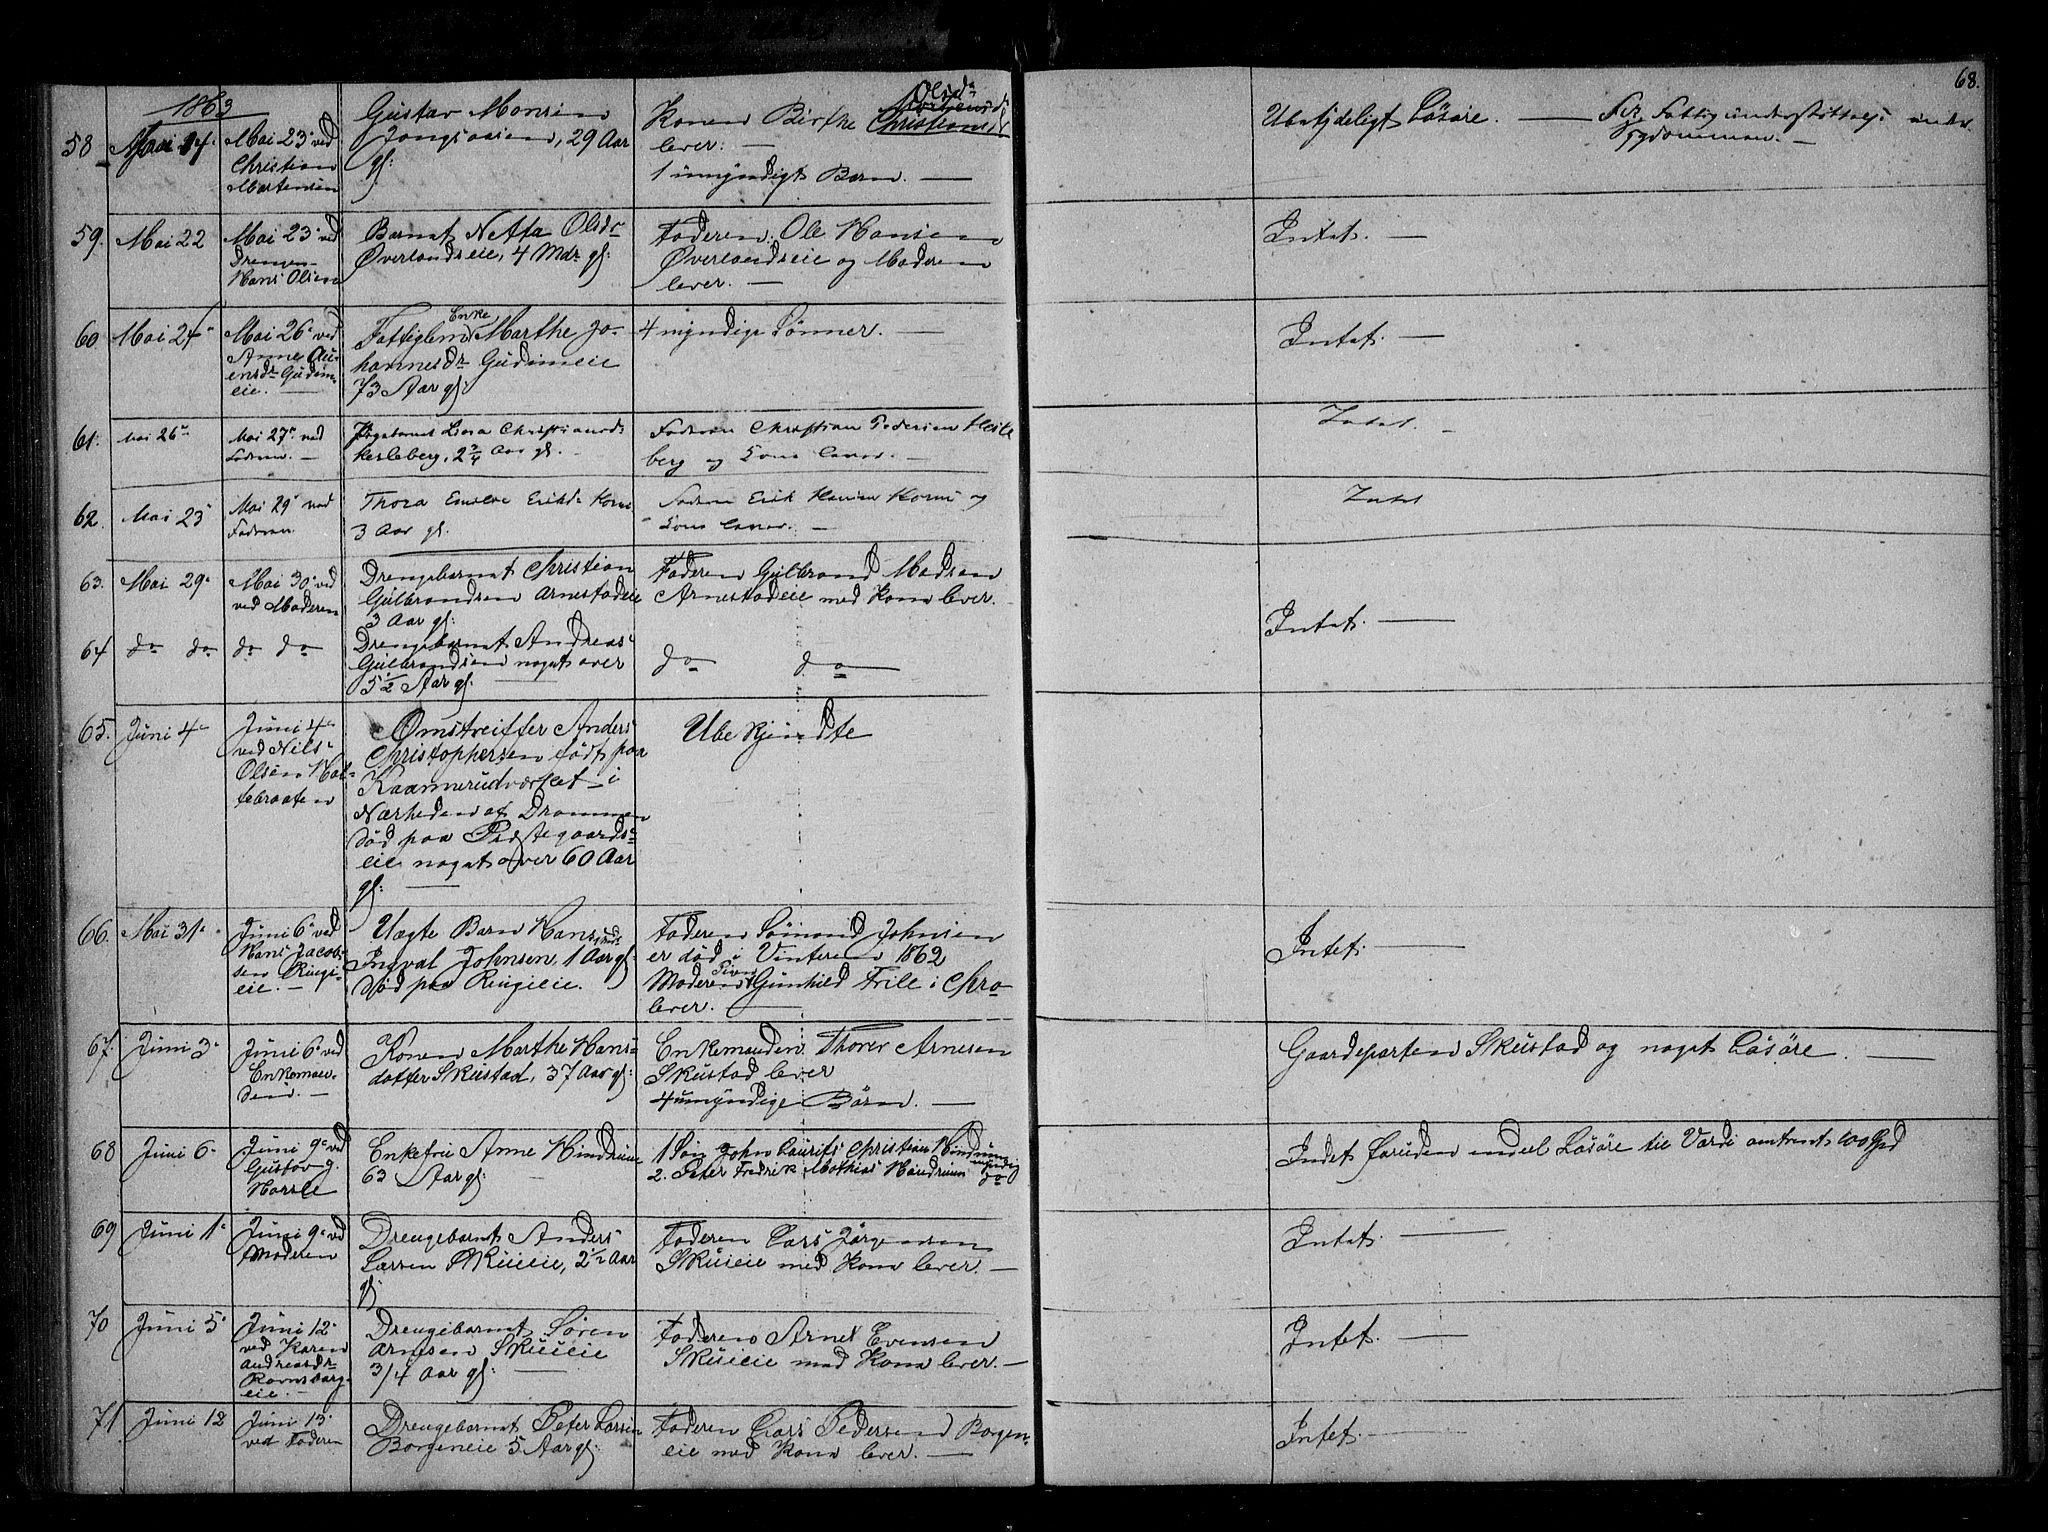 68.
1863
58 Mai 14. Mai 23 ved Christian Martensen
Gustav Monsen
29 Aar
gl:
Konen Birthe Olsdr
lever. —
1 umyndigt Barn. —
Ubetydeligt Løsøre. — Fik Fattigunderstøttelse under
Sygdommen. —
59. Mai 22
Mai 23 ved
Drengen
Hans Olsen
Barnet Netta Olsdr
Øverlandseie, 4 Mdr gl:
Faderen Ole Hansen
Øverlandseie og Moderen
lever. —
Intet. —
60. Mai 24
Mai 26 ved
Anne
Gudim
eie. —
Fattiglem Enke Marthe Jo-
hannesdr Gudimeie
73 Aar gl:
4 myndige Sønner. —
Intet. —
61. Mai 26
Mai 27 ved
Faderen. —
Pigebarnet Lina Christiansd.
Hesleberg, 2 3/4 Aar gl. —
Faderen Christian Pedersen Hesle
berg og Kone lever. —
Intet. —
62. Mai 25
Mai 29 ved
Faderen
Thora Emilie Eriksd.
3 Aar gl.
Faderen Erik Hansen og
Kone lever. —
Intet
63. Mai 29
Mai 30 ved
ved Moderen
Drengebarnet Christian
Gulbrandsen Arnestadeie
3 Aar gl:
Faderen Gulbrand Madsen
Arnestadeie med Kone lever.
Intet. —
64 do do do do
Drengebarnet Andreas
Gulbrandsen noget over
5 1/2 Aar gl: —
do do —
65. Juni 4
Juni 4
ved Nils
Olsen Hol-
tebraaten
Omstreiffer Anders
Christophersen født paa
Kaamerudværket i
Nærheden af Drammen
død paa Præstegaards-
eie noget over 60 Aar
gl: —
Ubekjendte
66. Mai 31
Juni 6 ved
Hans Jacob-
sen Ringi-
eie. —
Uægte Barn Hans
Ingval Johnsen, 1 Aar gl:
død paa Ringieie.
Faderen Sømand Johnsen
er død i Vinteren 1862
Moderen Pigen Gunhild Frile i Chra
lever. —
Intet. —
67. Juni 3
Juni 6 ved
Enkeman-
den. —
Konen Marthe Hans-
datter Skustad, 37 Aar gl:
Enkemanden Thorer Arnesen
Skustad lever
4 umyndige Børn. —
Gaardeparten Skustad og noget Løsøre. —
68 Juni 6
Juni 9 ved
Gustav J.
Horsle
Enkefru Anne Hindrum
63 Aar gl:
1 Søn John Laurits Christian Hindrum
myndig
2. Peter Fredrik Mathias Hindrum do
Intet foruden endel Løsøre til Værdi omtrent 100 Spd
69 Juni 1
Juni 9 ved
Moderen
Drengebarnet Anders
Larsen Skuieie, 2 1/2 Aar
gl
Faderen Lars Jørgensen
Skuieie med Kone lever. —
Intet. —
70 Juni 5
Juni 12
ved Karen
Andreasdr
Ravnsborg-
eie. —
Drengebarnet Søren
Arnesen Skuieie
3/4 Aar gl: —
Faderen Arne Evensen
Skuieie med Kone lever. —
Intet. —
71 Juni 12
Juni 13
ved Faderen
Drengebarnet Peter Larsen
Borgeneie 5 Aar gl:
Faderen Lars Pedersen Borgen-
eie med Kone lever. —
Intet. —